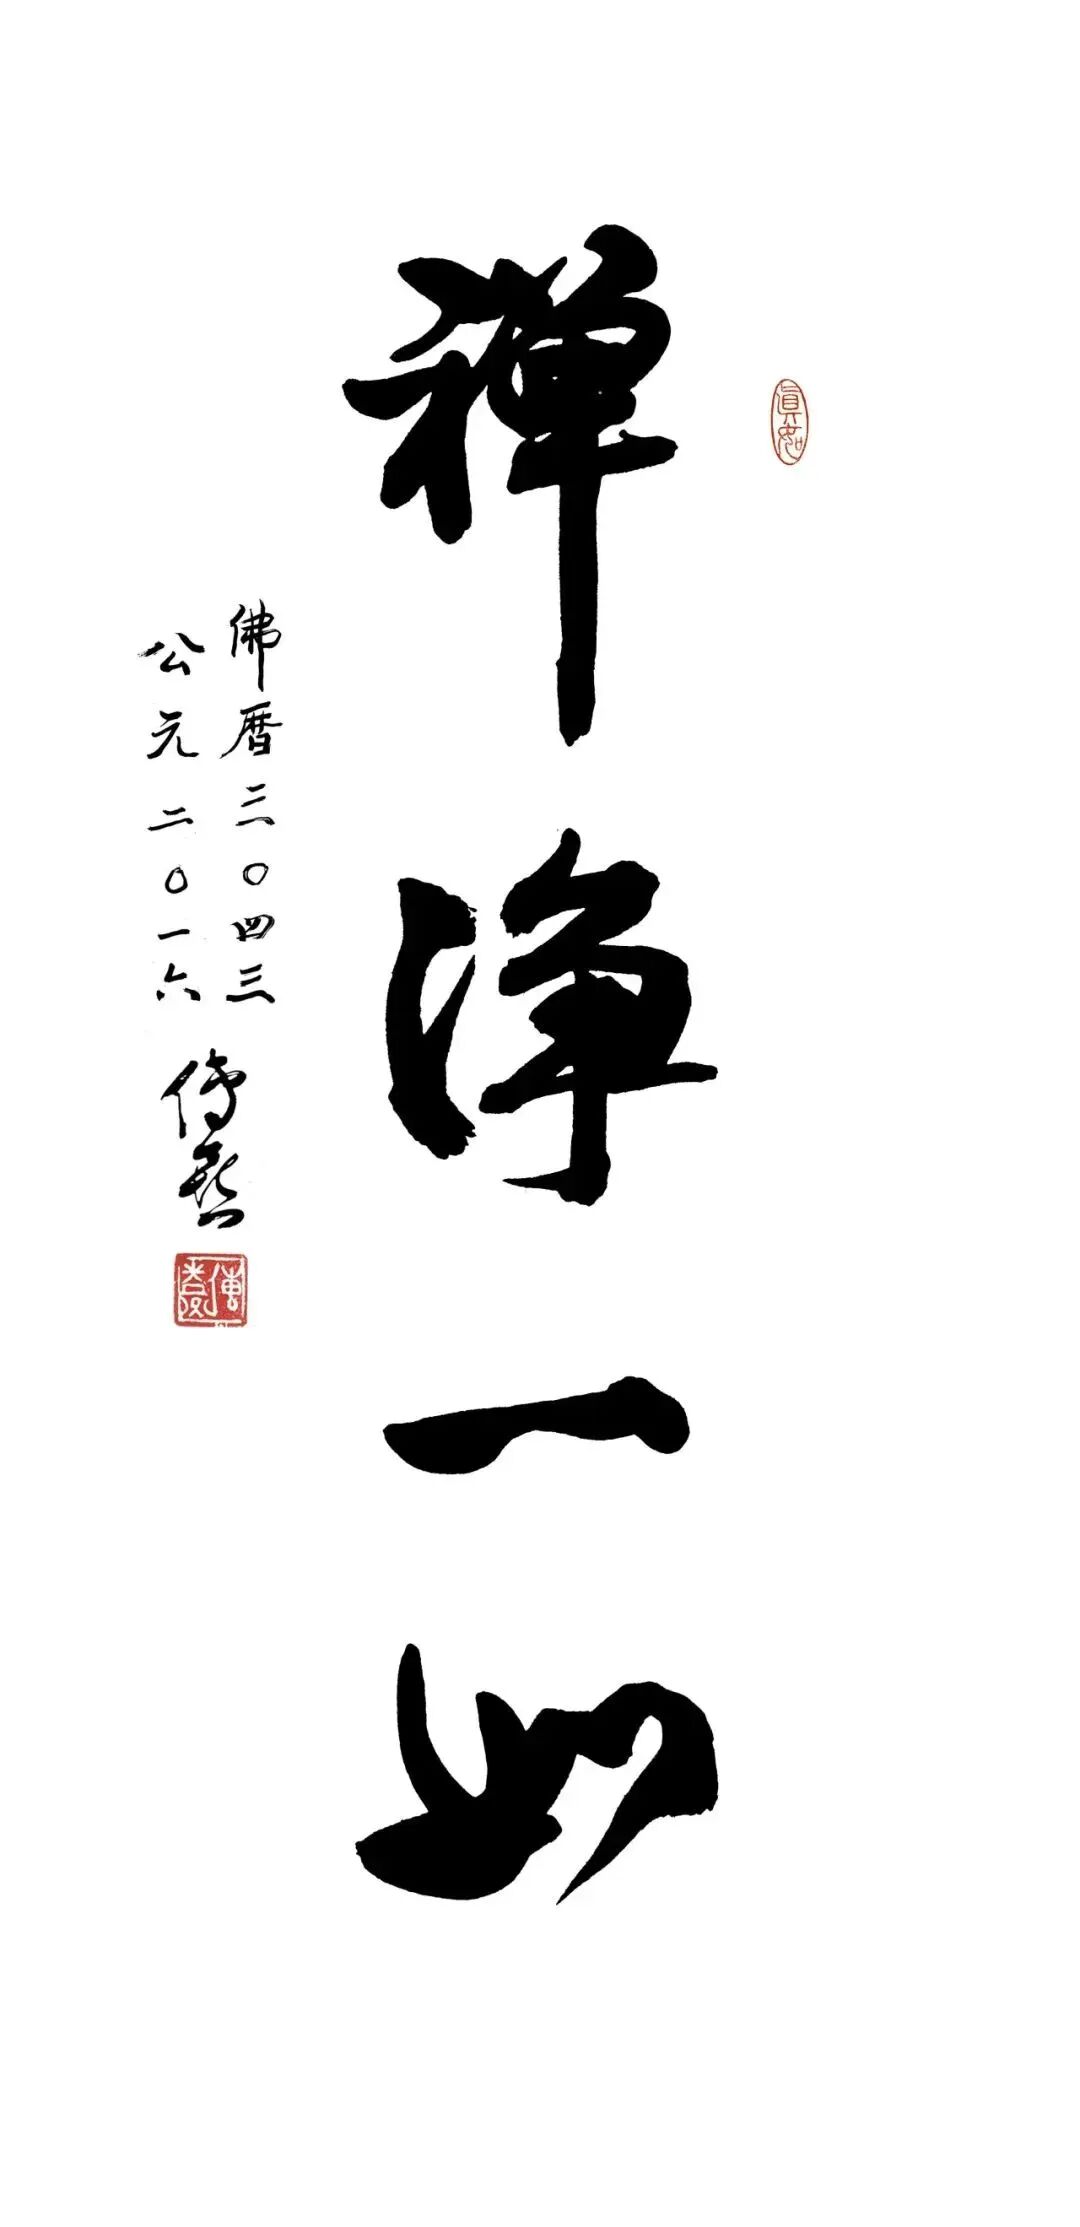 真如
禪淨一如
佛曆三〇四三
公元二〇一六
傳喜
傳喜